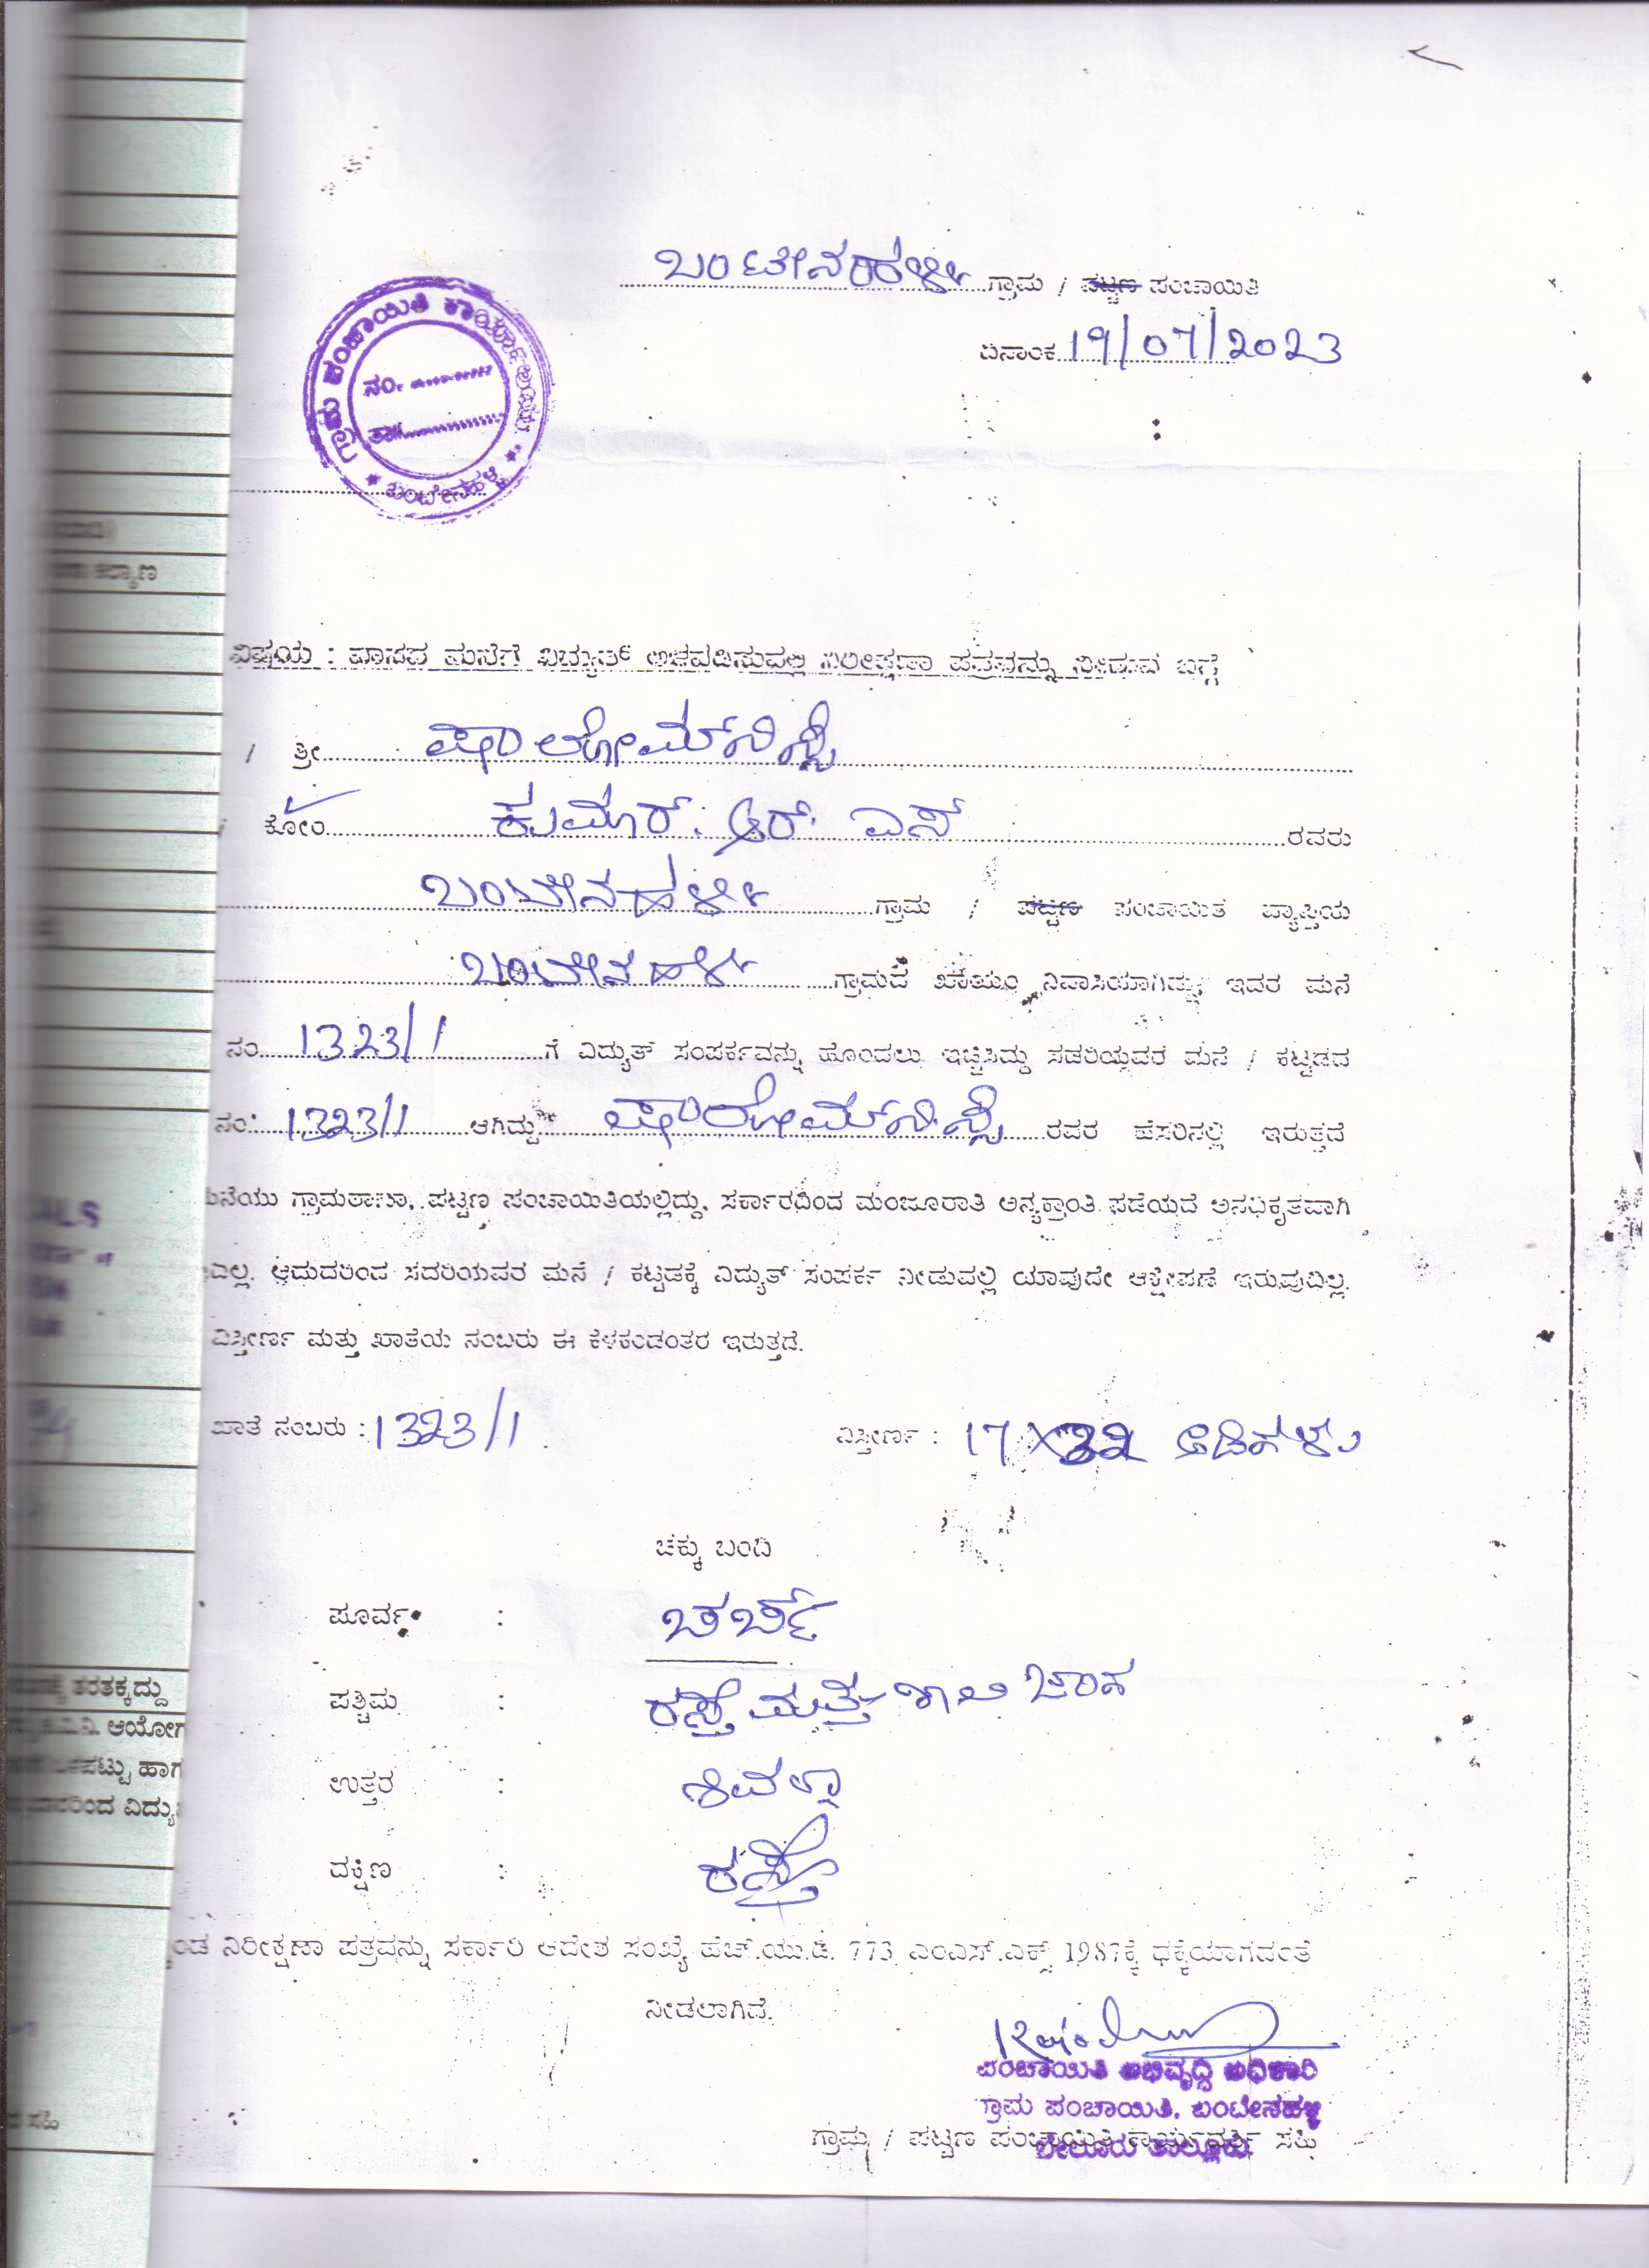 ಬಂಟೇನಹಳ್ಳಿ ಗ್ರಾಮ / ಪಟ್ಟಣ ಪಂಚಾಯಿತಿ
ದಿನಾಂಕ 19/07/2023
ಗ್ರಾಮ ಪಂಚಾಯಿತಿ ಕಾರ್ಯಾಲಯ
ನಂ.
ತಾ||
ಬಂಟೇನಹಳ್ಳಿ
ವಿಷಯ : ವಾಸದ ಮನೆಗೆ ವಿದ್ಯುತ್ ಅಳವಡಿಸುವಲ್ಲಿ ನಿರೀಕ್ಷಣಾ ಪತ್ರವನ್ನು ನೀಡುವ ಬಗ್ಗೆ
/ ಶ್ರೀ
/ ಕೋಂ ಕುಮಾರ್. ಆರ್. ಎಸ್ ರವರು
ಬಂಟೇನಹಳ್ಳಿ ಗ್ರಾಮ / ಪಟ್ಟಣ ಪಂಚಾಯಿತಿ ವ್ಯಾಪ್ತಿಯ
ಬಂಟೇನಹಳ್ಳಿ ಗ್ರಾಮದ ಖಾಯಂ ನಿವಾಸಿಯಾಗಿದ್ದು, ಇವರ ಮನೆ
ನಂ. 1323/1 ಗೆ ವಿದ್ಯುತ್ ಸಂಪರ್ಕವನ್ನು ಹೊಂದಲು ಇಚ್ಛಿಸಿದ್ದು ಸದರಿಯವರ ಮನೆ / ಕಟ್ಟಡದ
ನಂ. 1323/1 ಆಗಿದ್ದು ರವರ ಹೆಸರಿನಲ್ಲಿ ಇರುತ್ತದೆ
ಮನೆಯು ಗ್ರಾಮಠಾಣಾ, ಪಟ್ಟಣ ಪಂಚಾಯಿತಿಯಲ್ಲಿದ್ದು, ಸರ್ಕಾರದಿಂದ ಮಂಜೂರಾತಿ ಅನ್ಯಕ್ರಾಂತಿ ಪಡೆಯದೆ ಅನಧಿಕೃತವಾಗಿ
ಆದುದರಿಂದ ಸದರಿಯವರ ಮನೆ / ಕಟ್ಟಡಕ್ಕೆ ವಿದ್ಯುತ್ ಸಂಪರ್ಕ ನೀಡುವಲ್ಲಿ ಯಾವುದೇ ಆಕ್ಷೇಪಣೆ ಇರುವುದಿಲ್ಲ.
ವಿಸ್ತೀರ್ಣ ಮತ್ತು ಖಾತೆಯ ನಂಬರು ಈ ಕೆಳಕಂಡಂತರ ಇರುತ್ತದೆ.
ಖಾತೆ ನಂಬರು : 1323/1 ವಿಸ್ತೀರ್ಣ : 17X32 ಅಡಿಗಳು
ಚಕ್ಕು ಬಂದಿ
ಪೂರ್ವ : ಚರ್ಚ್
ಪಶ್ಚಿಮ : ರಸ್ತೆ ಮತ್ತು ಖಾಲಿ ಜಾಗ
ಉತ್ತರ : ಶಿವಣ್ಣ
ದಕ್ಷಿಣ : ರಸ್ತೆ
ನಿರೀಕ್ಷಣಾ ಪತ್ರವನ್ನು ಸರ್ಕಾರಿ ಆದೇಶ ಸಂಖ್ಯೆ ಹೆಚ್.ಯು.ಡಿ. 773 ಎಂಎಸ್.ಎಕ್ಸ್ 1987ಕ್ಕೆ ಧಕ್ಕೆಯಾಗದಂತೆ
ನೀಡಲಾಗಿದೆ.
ಪಂಚಾಯಿತಿ ಅಭಿವೃದ್ಧಿ ಅಧಿಕಾರಿ
ಗ್ರಾಮ ಪಂಚಾಯಿತಿ, ಬಂಟೇನಹಳ್ಳಿ
ಬೇಲೂರು ತಾಲ್ಲೂಕು
ಗ್ರಾಮ / ಪಟ್ಟಣ ಪಂಚಾಯಿತಿ ಕಾರ್ಯದರ್ಶಿ ಸಹಿ
ತರತಕ್ಕದ್ದು